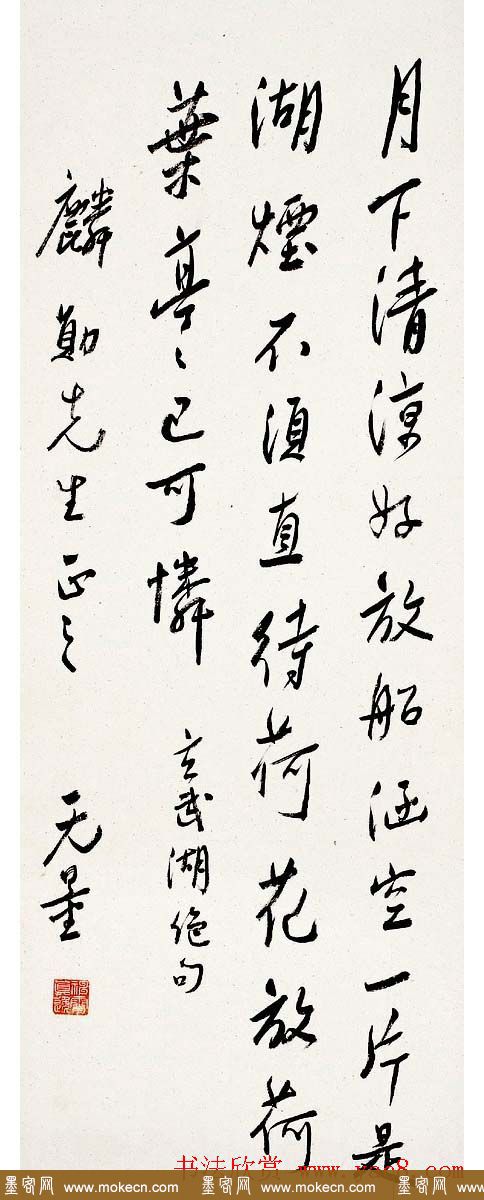 月下清涼好放船涵空一片是
湖煙不須直待荷花放荷
葉亭〻已可憐
玄武湖絶句
麟勛先生正之
无量
书法欣赏
墨客网 www.mokecn.com 墨客网 www.mokecn.com 墨客网 www.mokecn.com